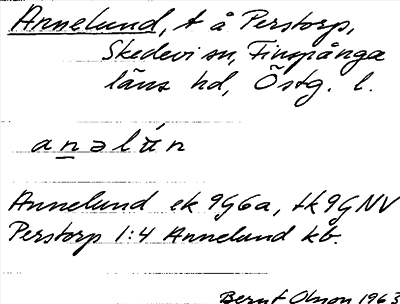 Annelund, t å Perstorp,
Skedevi sn, Finspånga
läns hd, Östg. l.
Annelund ek 9G6a, tk 9G NV
Perstorp 1:4 Annelund kb.
Bernt Olson 1963